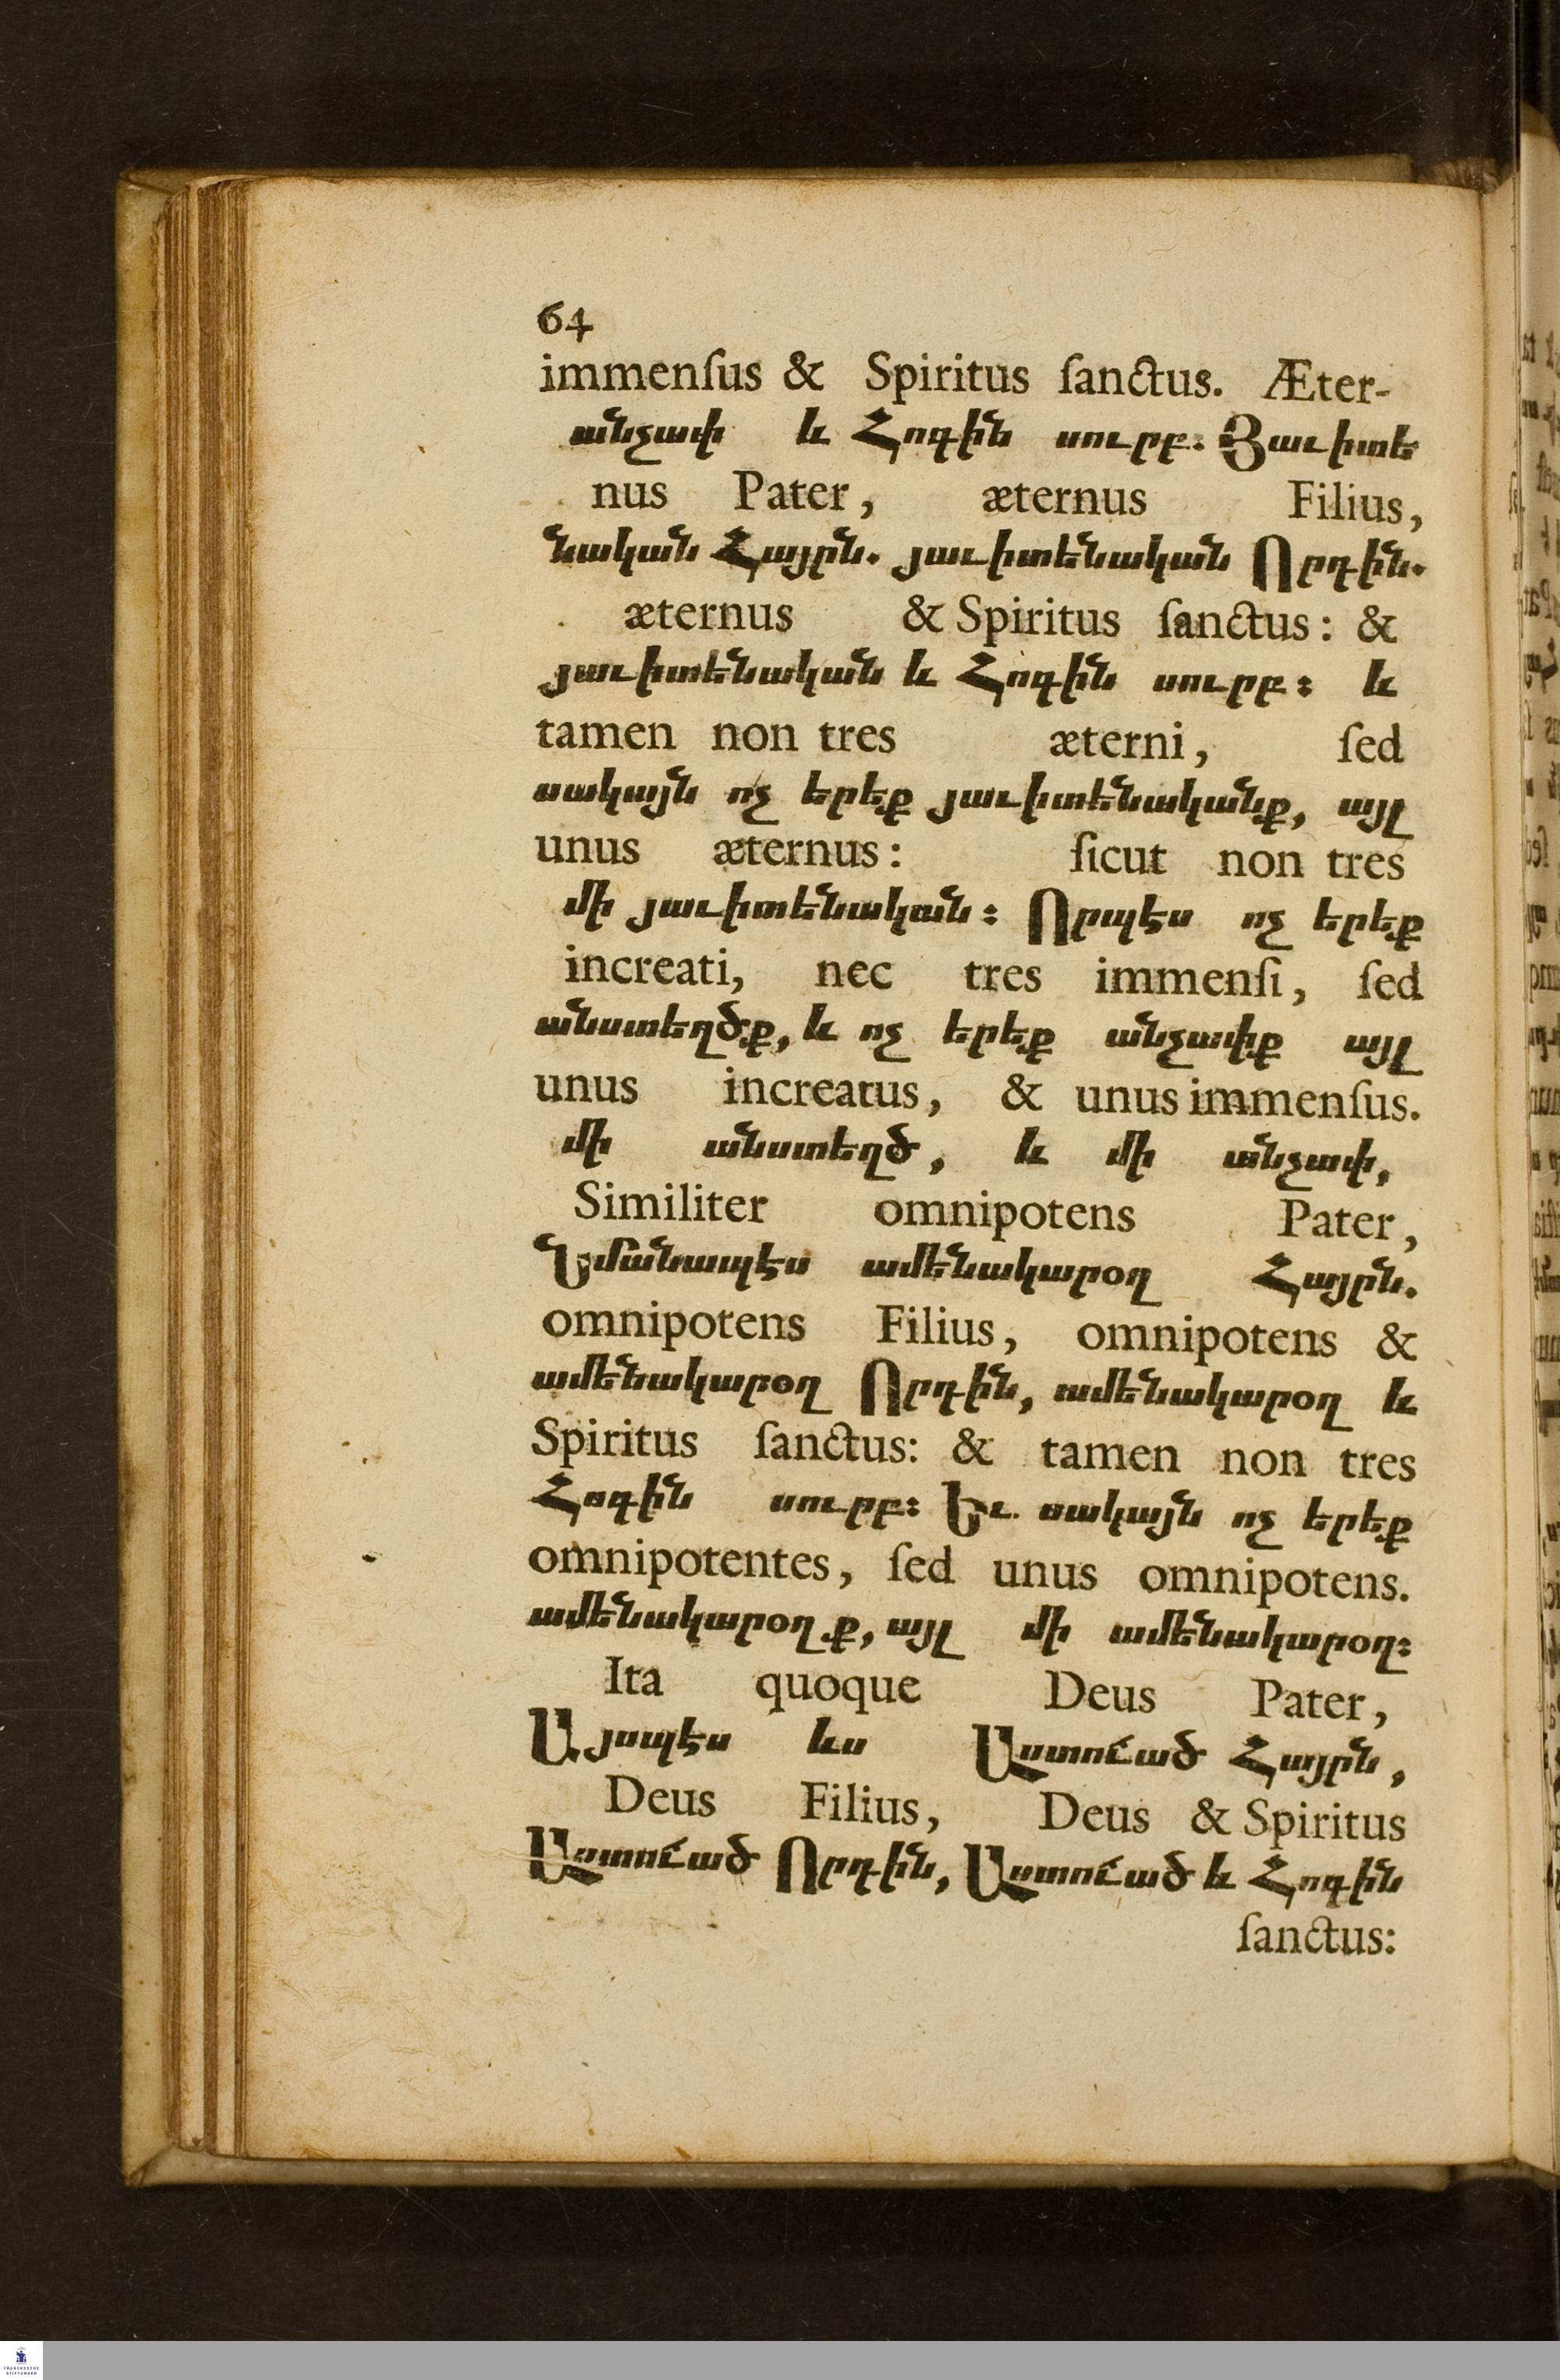 64
immenſus & Spiritus ſanctus. Æter-
անչափ և Հոգին սուրբ։ Յաւիտե
nus Pater, æternus Filius,
նական Հայրն. յաւիտենական Որդին.
æternus & Spiritus ſanctus: &
յաւիտենական և Հոգին սուրբ։ և
tamen non tres æterni, ſed
սակայն ոչ երեք յաւիտենականք, այլ
unus æternus: ſicut non tres
մի յաւիտենական։ Որպէս ոչ երեք
increati, nec tres immenſi, ſed
անստեղծք, և ոչ երեք անչափք այլ
unus increatus, & unus immenſus.
մի անստեղծ, և մի անչափ,
Similiter omnipotens Pater,
Նմանապէս ամենակարօղ Հայրն.
omnipotens Filius, omnipotens &
ամենակարօղ Որդին, ամենակարօղ և
Spiritus ſanctus: & tamen non tres
Հոգին սուրբ։ Եւ սակայն ոչ երեք
omnipotentes, ſed unus omnipotens.
ամենակարօղք, այլ մի ամենակարօղ։
Ita quoque Deus Pater,
Այսպէս ևս Աստուած Հայրն,
Deus Filius, Deus & Spiritus
Աստուած Որդին, Աստուած և Հոգին
ſanctus:
FRANCKESCHE
STIFTUNGEN